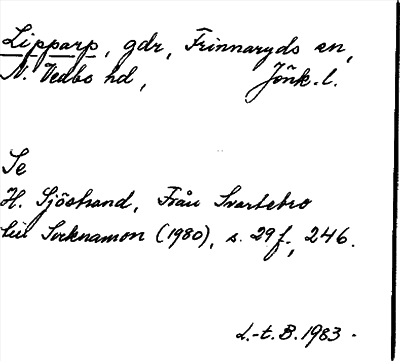 Lipparp, gdr, Frinnaryds sn,
N. Vedbo hd, Jönk. l.
Se
H. Sjöstrand, Från Svartebro
till Socknamon (1980), s. 29 f., 246.
L.-t. B. 1983.